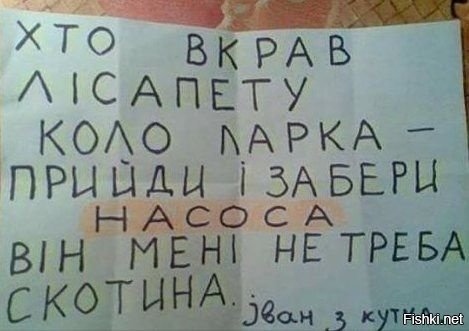 ХТО ВКРАВ
ЛІСАПЕТУ
КОЛО ЛАРКА –
ПРИЙДИ І ЗАБЕРИ
НАСОСА
ВІН МЕНІ НЕ ТРЕБА
СКОТИНА.
іван з кутка
Fishki.net